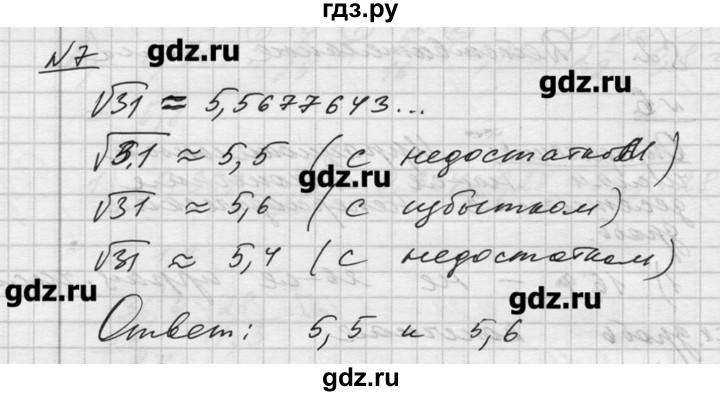 гдз.ру
N7
gdz.ru
√31 ≈ 5,5677643...
gdz.ru
√3,1 ≈ 5,5 (с недостатком)
gdz.ru
√31 ≈ 5,6 (с избытком)
√31 ≈ 5,4 (с недостатком)
gdz.ru
gdz.ru
Ответ: 5,5 и 5,6
gdz.ru